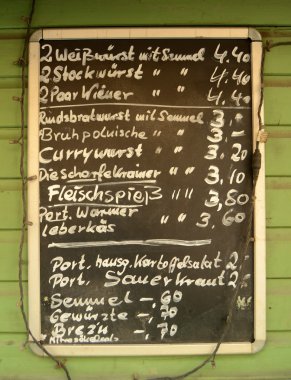 2 Weißwürst mit Semmel 4.40
2 Stockwürst " " 4,40
2 Paar Wiener " " 4,40
Rindsbratwurst mit Semmel 3,-
Bruhpolnische " " 3,-
Currywurst " " 3,20
Die scharfe Krainer " " 3,10
Fleischspieß " " 3,80
Port. Warmer " " 3,60
Leberkäs
Port. hausg. Kartoffelsalat 2
Port. Sauerkraut 2
Semmel -,60
Gewürzte -,70
Brezn -,70